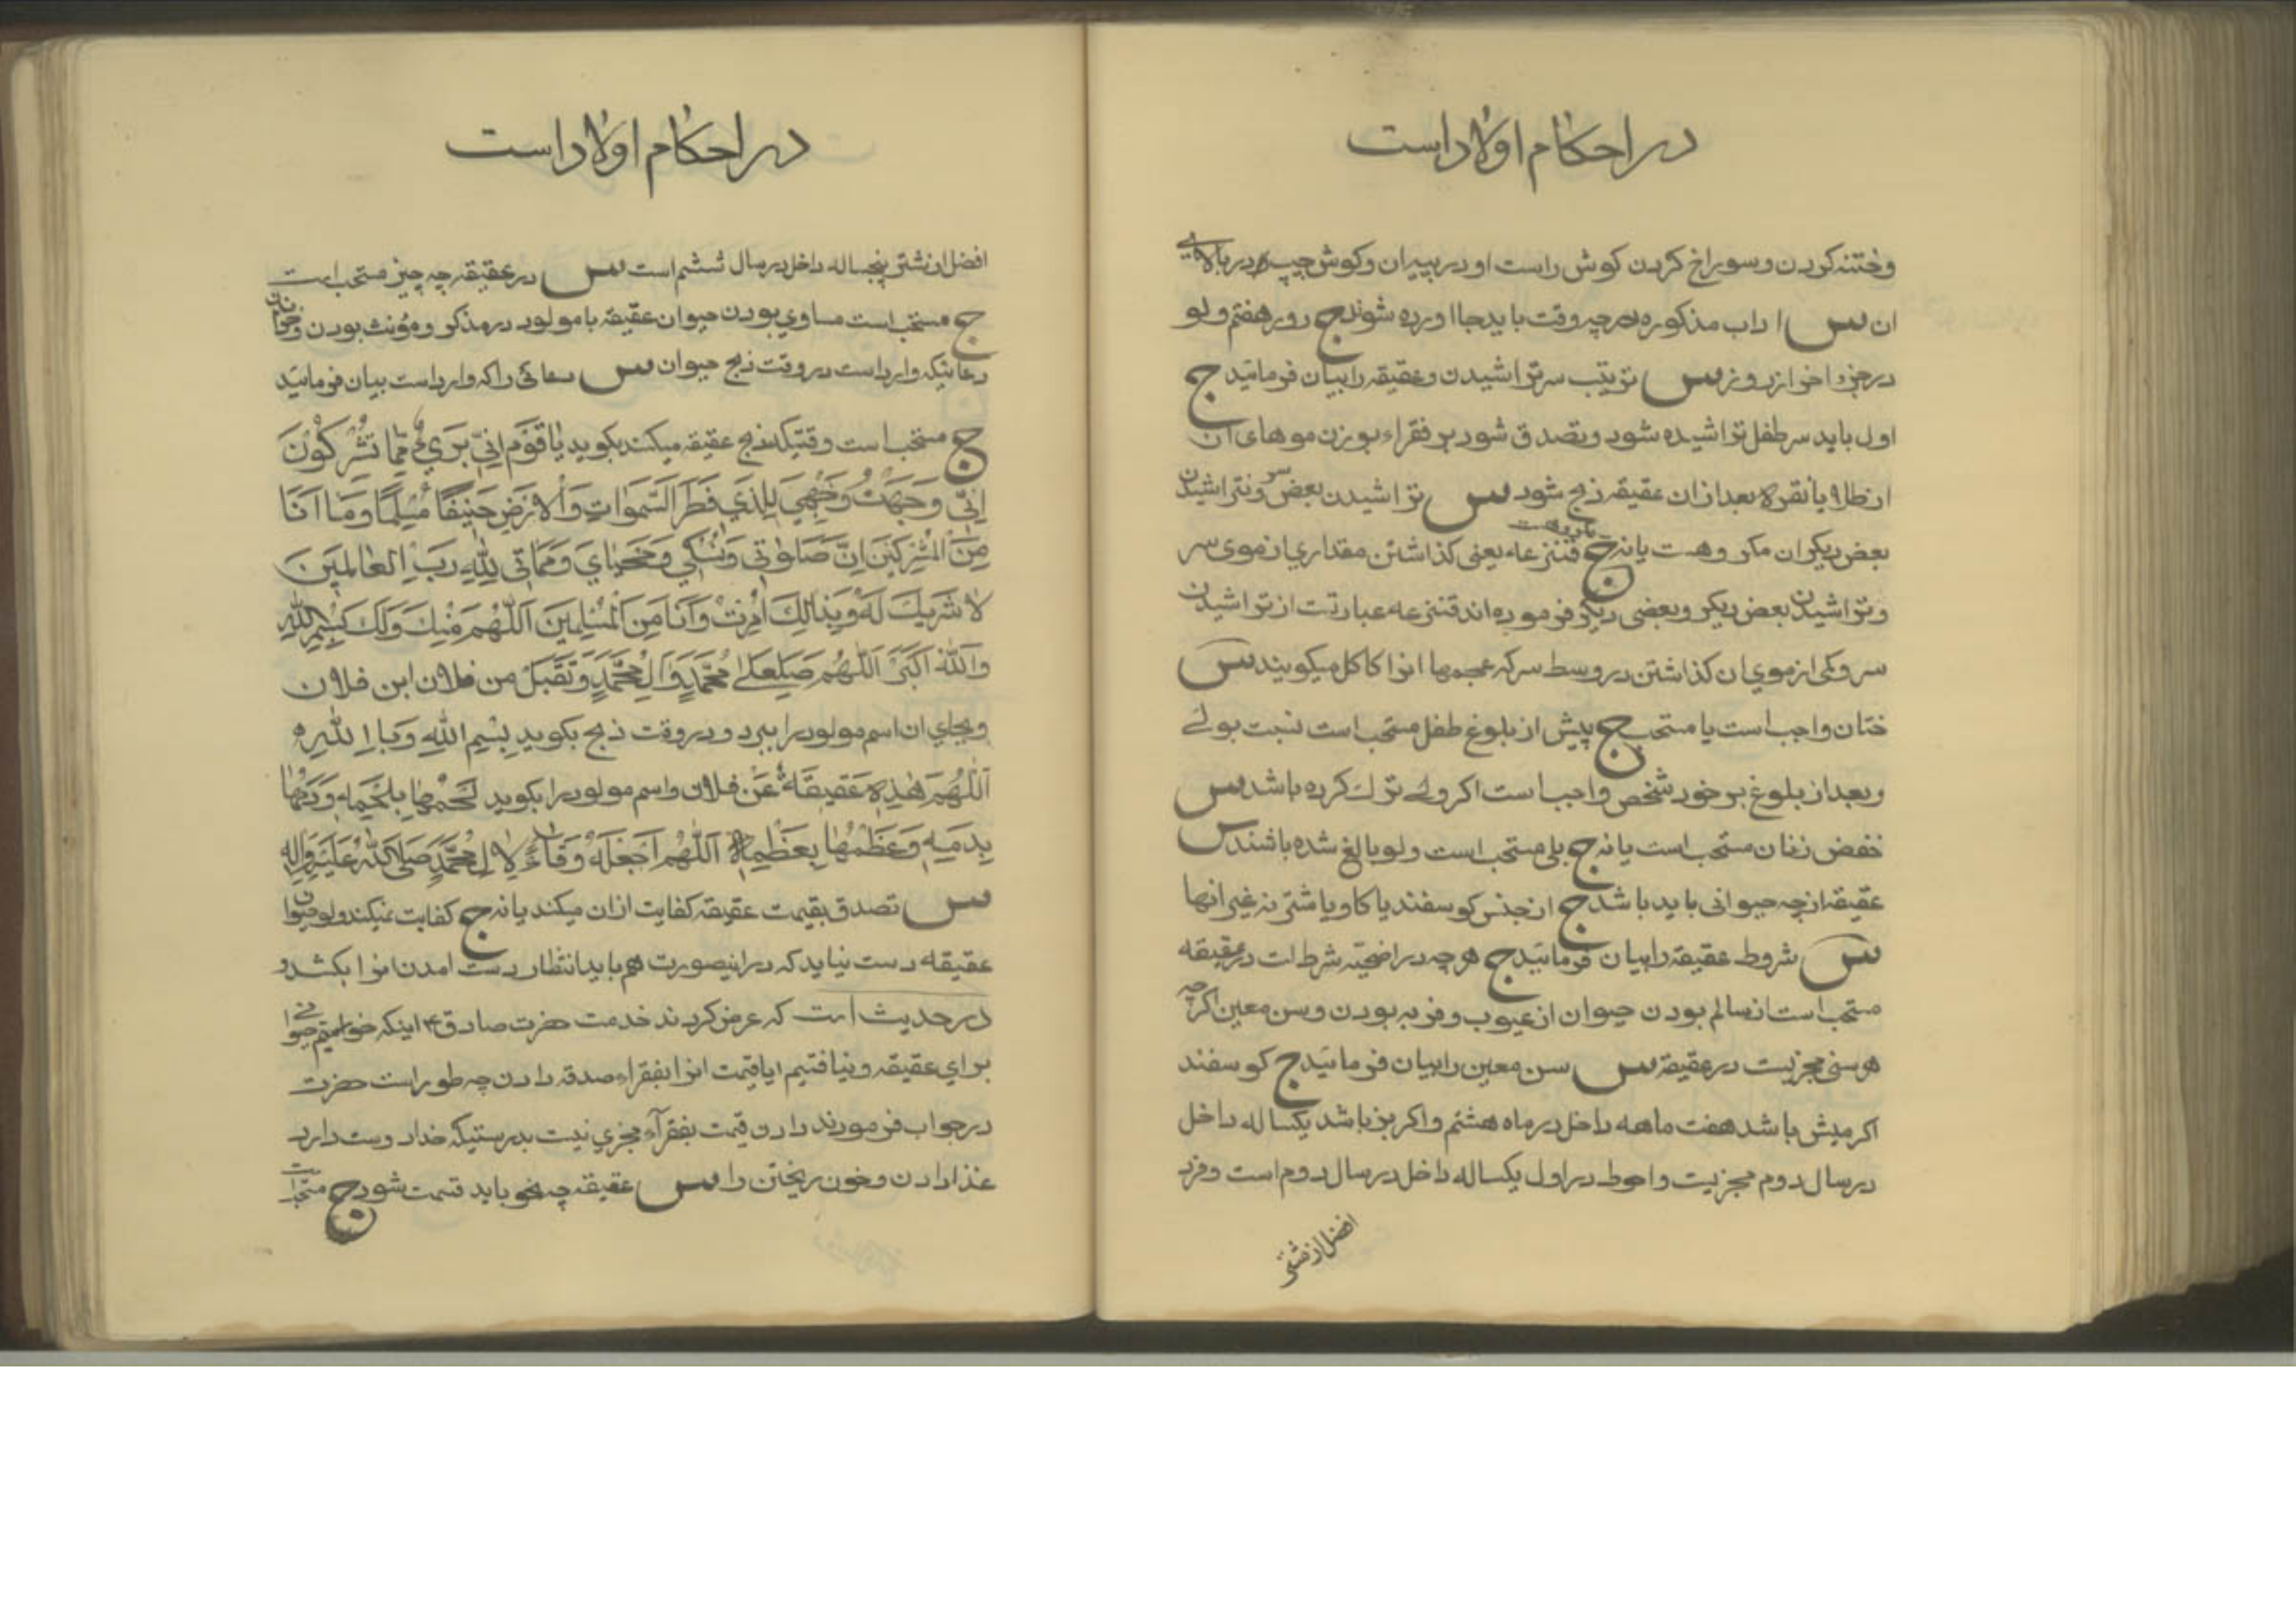 در احکام اولاد است
وختنه کردن و سوراخ کردن کوش راست او در پسران وکوش چپ در بالای
ان س اداب مذکوره در چه وقت باید بجا اورده شوند ج روز هفتم ولو
در جزء اخر از روز س ترتیب سر تراشیدن وعقیقه را بیان فرمائید ج
اول باید سر طفل تراشیده شود وتصدق شود بر فقراء بوزن موهای ان
از طلا یا نقره بعد از ان عقیقه ذبح شود س تراشیدن بعض سر ونتراشیدن
بعض دیکر ان مکروهست یا نه ج مکروهست قنزعاء یعنی کذاشتن مقداری از موی سر
وتراشیدن بعض دیکر وبعضی دیکر فرموده اند قنزعه عبارتست از تراشیدن
سر وکمی از موی ان کذاشتن در وسط سر که عجمها انرا کاکل میکویند س
ختان واجب است یا مستحب ج پیش از بلوغ طفل مستحب است نسبت بولی
وبعد از بلوغ بر خود شخص واجب است اکر ولی ترک کرده باشد س
خفض زنان مستحب است یا نه ج بلی مستحب است ولو بالغ شده باشند س
عقیقه از چه حیوانی باید باشد ج از جنس کوسفند یا کاو یا شتر نه غیر انها
س شروط عقیقه را بیان فرمائید ج هر چه در اضحیه شرط است در عقیقه
مستحب است از سالم بودن حیوان از عیوب وفربه بودن وسن معین اکرچه
هر سنی مجزیست در عقیقه س سن معین را بیان فرمائید ج کوسفند
اکر میش باشد هفت ماهه داخل در ماه هشتم واکر بز باشد یکساله داخل
در سال دوم مجزیست واحوط در اول یکساله داخل در سال دوم است وفرد
افضل از شتر
در احکام اولاد است
افضل از شتر پنجساله داخل در سال ششم است س در عقیقه چه چیز مستحب است
ج مستحب است مساوی بودن حیوان عقیقه با مولود در مذکر ومؤنث بودن وخواندن
دعائیکه وارد است در وقت ذبح حیوان س دعائی را که وارد است بیان فرمائید
ج مستحب است وقتیکه ذبح عقیقه میکند بکوید یٰا قَوْمِ اِنّی بَرَیٌ مِمّٰا تُشْرِکُوْنَ
اِنّی وَجَهْتُ وَجْهِیَ لِلَذی فَطَرَ السَّمٰوٰاتِ وَالْاَرْضِ حَنیفًا مُسْلِمًا وَمٰا اَنَا
مِنَ الْمُشْرِکینَ اِنَّ صَلوٰتی وَنُسُکی وَمَحْیٰایَ وَمَمٰاتی لِلّٰهِ رَبِّ الْعٰالَمینَ
لاٰ شَریکَ لَهُ وَبِذٰالِکَ اُمِرْتُ وَاَنَا مِنَ الْمُسْلِمینَ اَللّٰهُمَ مِنْکَ وَلَکَ بِسْمِ اللّٰهِ
وَاللّٰهُ اَکْبَرُ اَللّٰهُمَ صَلِ عَلیٰ مُحَمَّدٍ وَاٰلِ مُحَمَّدٍ وَتَقَبَلْ من فلان ابن فلان
وبجای ان اسم مولود را ببرد ودر وقت ذبح بکوید بِسْمِ اللّٰهِ وَبِاللّٰهِ
اَللّٰهُمَ هٰذِهِ عَقیقَةٌ عَنْ فلان واسم مولود را بکوید لَحْمُهٰا بِلَحْمِهِ وَدَمُهٰا
بِدَمِهِ وَعَظْمُهٰا بِعَظْمِهِ اَللّٰهُمَ اجْعَلْهُ وِقٰاءً لِاٰلِ مُحَمَّدٍ صَلَی اللّٰهُ عَلَیْهِ وَاٰلِهِ
س تصدق بقیمت عقیقه کفایت از ان میکند یا نه ج کفایت نمیکند ولو حیوان
عقیقه دست نیاید که در اینصورت هم باید انتظار دست امدن انرا بکشد و
در حدیث است که عرض کردند خدمت حضرت صادق ع اینکه خواستیم حیوانی
برای عقیقه ونیافتیم ایا قیمت انرا بفقراء صدقه دادن چه طور است حضرت
در جواب فرمودند دادن قیمت بفقرآء مجزی نیست بدرستیکه خدا دوست دارد
غذا دادن وخون ریختن را س عقیقه چه نحو باید قسمت شود ج مستحب است